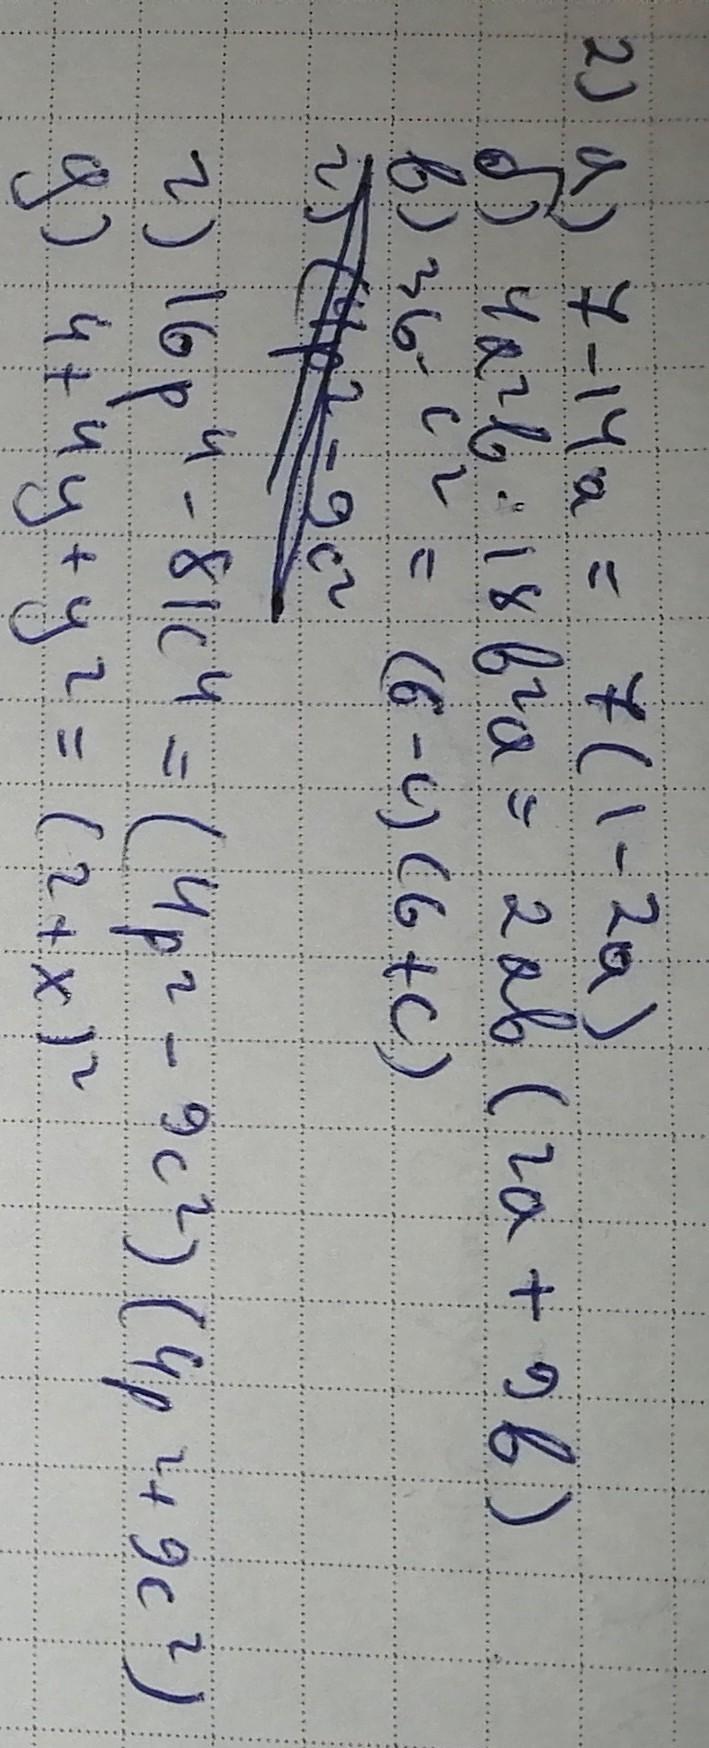 2) а) 7-14a = 7(1-2a)
б) 4a²b · 18b²a = 2ab(2a + 9b)
в) 36-c² = (6-c)(6+c)
г) (4p²-9c²
г) 16p⁴-81c⁴ = (4p²-9c²)(4p²+9c²)
д) 4+4y+y² = (2+x)²